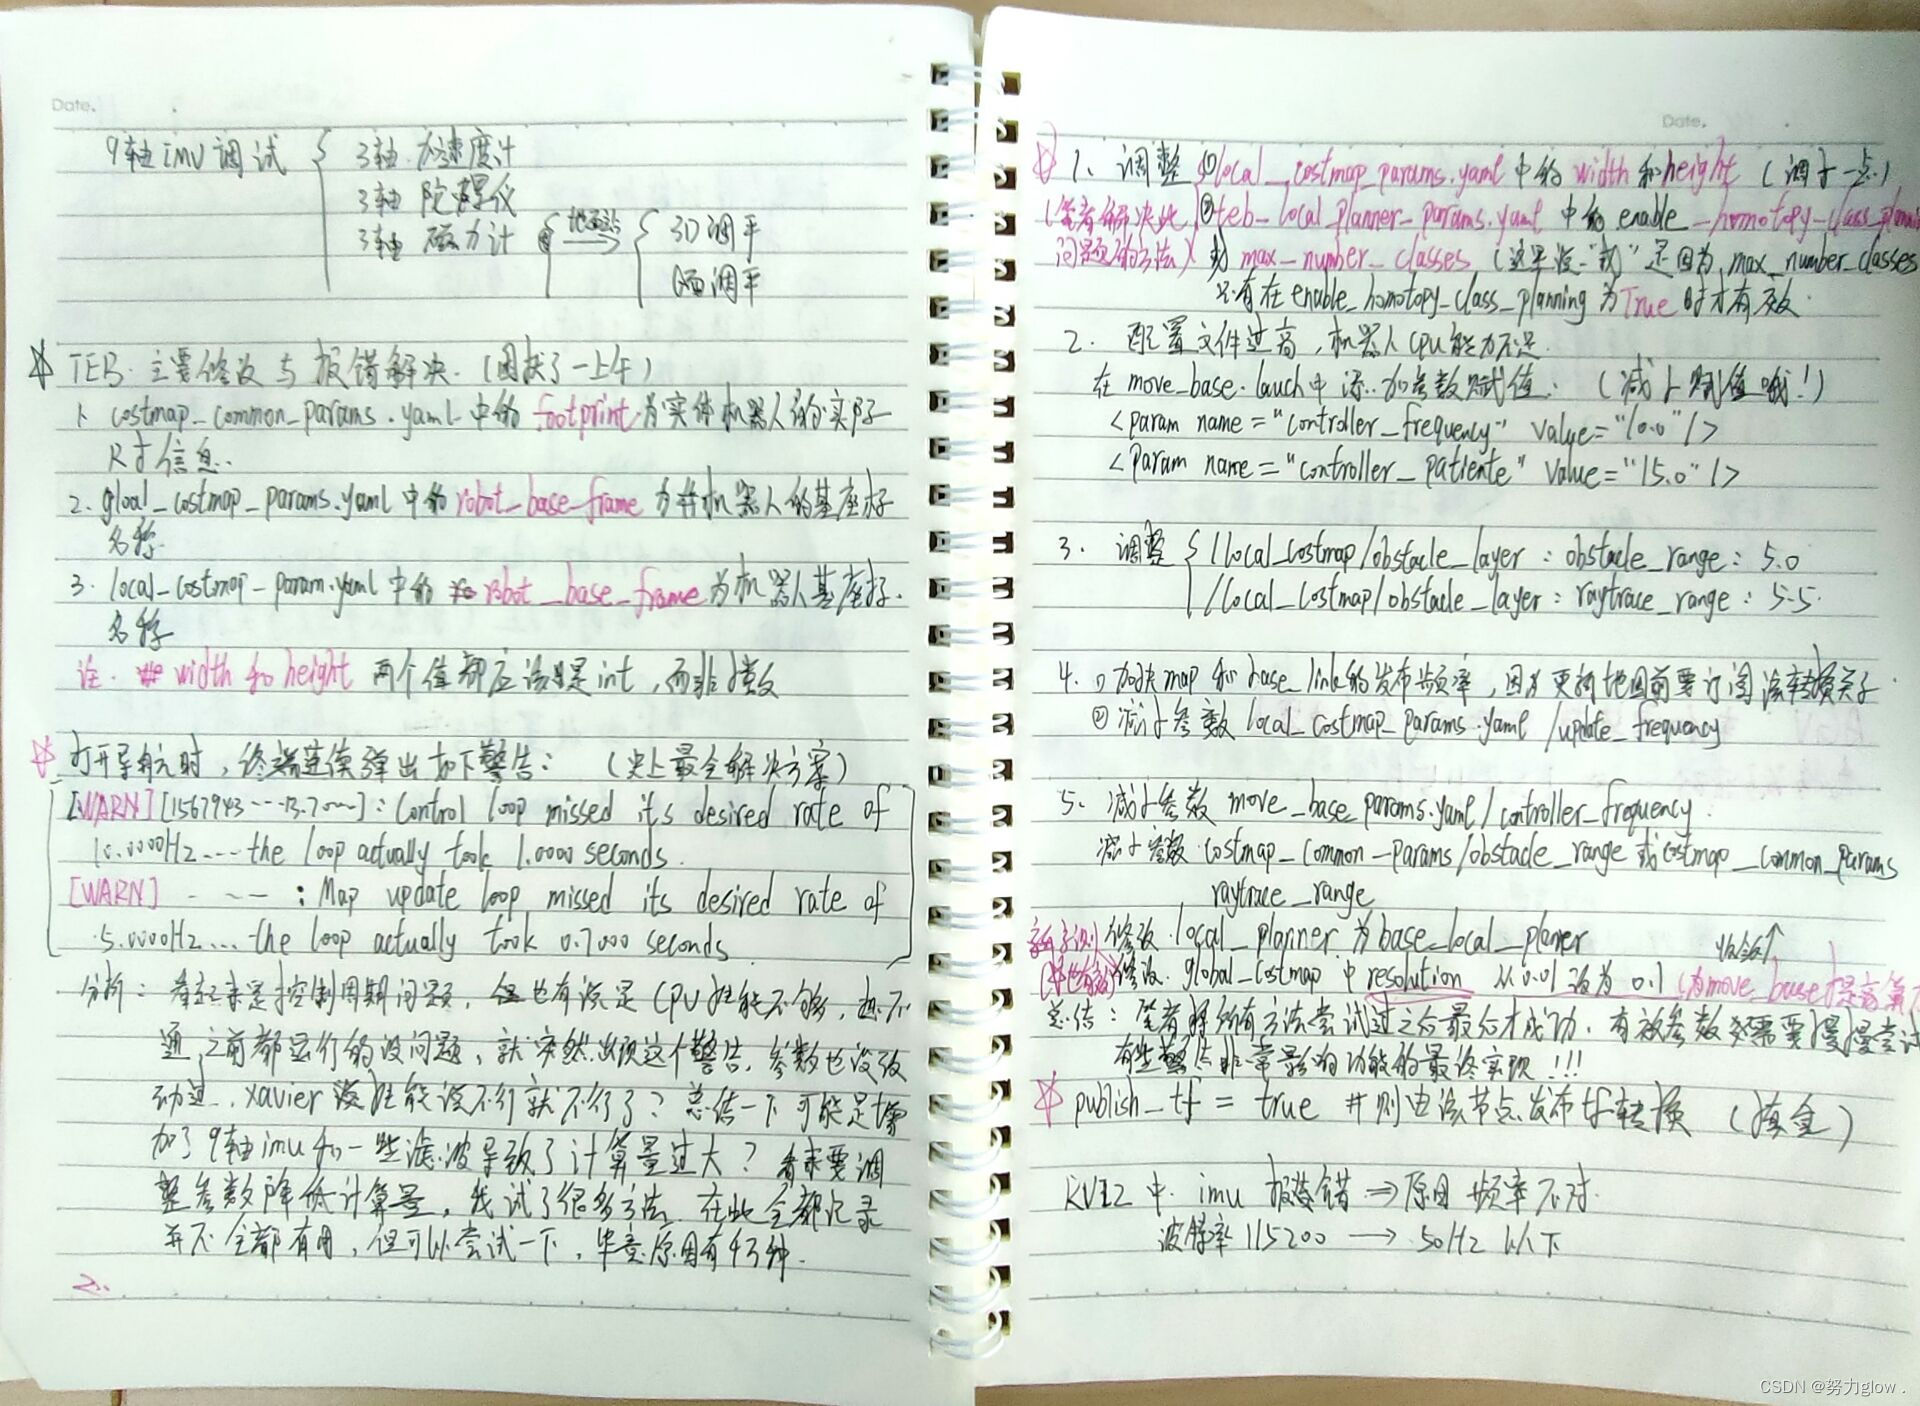 Date.
9轴imu调试 { 3轴 加速度计
3轴 陀螺仪
3轴 磁力计 地面站 { 3D调平
8面调平
☆ TEB 主要修改与报错解决.(困扰了一上午)
1. costmap_common_params.yaml中的footprint为实体机器人的实际
尺寸信息.
2. gloal_costmap_params.yaml中的robot_base_frame为机器人的基座标
名称.
3. local_costmap_param.yaml中的robot_base_frame为机器人基座标.
名称
注. width和height 两个值都应该是int,而非小数
☆ 打开导航时,终端连续弹出如下警告: (史上最全解决方案)
[WARN][1567943----13.7]: Control loop missed its desired rate of
10.0000Hz ---- the loop actually took 1.0000 seconds.
[WARN] - --- : Map update loop missed its desired rate of
5.0000Hz... the loop actually took 0.7000 seconds
分析: 看起来是控制周期问题,但也有说是CPU性能不够,想不
通,之前都运行的没问题,就突然出现这个警告,参数也没改
动过.xavier 性能说不行就不行了?总结一下可能是增
加了9轴imu和一些滤波导致了计算量过大?看来要调
整参数降低计算量,我试了很多方法 在此全都记录
并不全都有用,但可以尝试一下,毕竟原因有千万种.
2.
Date.
☆ 1、调整 { ①local_costmap_params.yaml中的width和height (调小一点)
(笔者解决此 ②teb_local_planner_params.yaml 中的enable_homotopy_class_planning
问题的方法) 或 max_number_classes (这里说"或"是因为max_number_classes
只有在enable_homotopy_class_planning为True时才有效.
2. 配置文件过高,机器人cpu能力不足
在move_base.lauch中添加参数赋值. (减小赋值哦!)
<param name="controller_frequency" value="10.0"/>
<param name="controller_patiente" value="15.0"/>
3. 调整 { /local_costmap/obstacle_layer : obstacle_range : 5.0
/local_costmap/obstacle_layer : raytrace_range : 5.5.
4. ①加快map和base_link的发布频率,因为更新地图前要订阅该转换关系.
②减小参数 local_costmap_params.yaml /update_frequency
5. 减小参数 move_base_params.yaml/controller_frequency.
减小参数 costmap_common_params/obstacle_range或costmap_common_params
raytrace_range
修改.local_planner为base_local_planer
修改. global_costmap中resolution 从0.01改为0.1
总结: 笔者将所有方法尝试过之后最后才成功.有效参数需要慢慢尝试
有些警告非常影响功能的最终实现!!!
☆ publish_tf = true 则由该节点发布tf转换
RVIZ中 imu 报错 ⇒原因 频率不对.
波特率 115200 → 50HZ 以下
CSDN @努力glow .